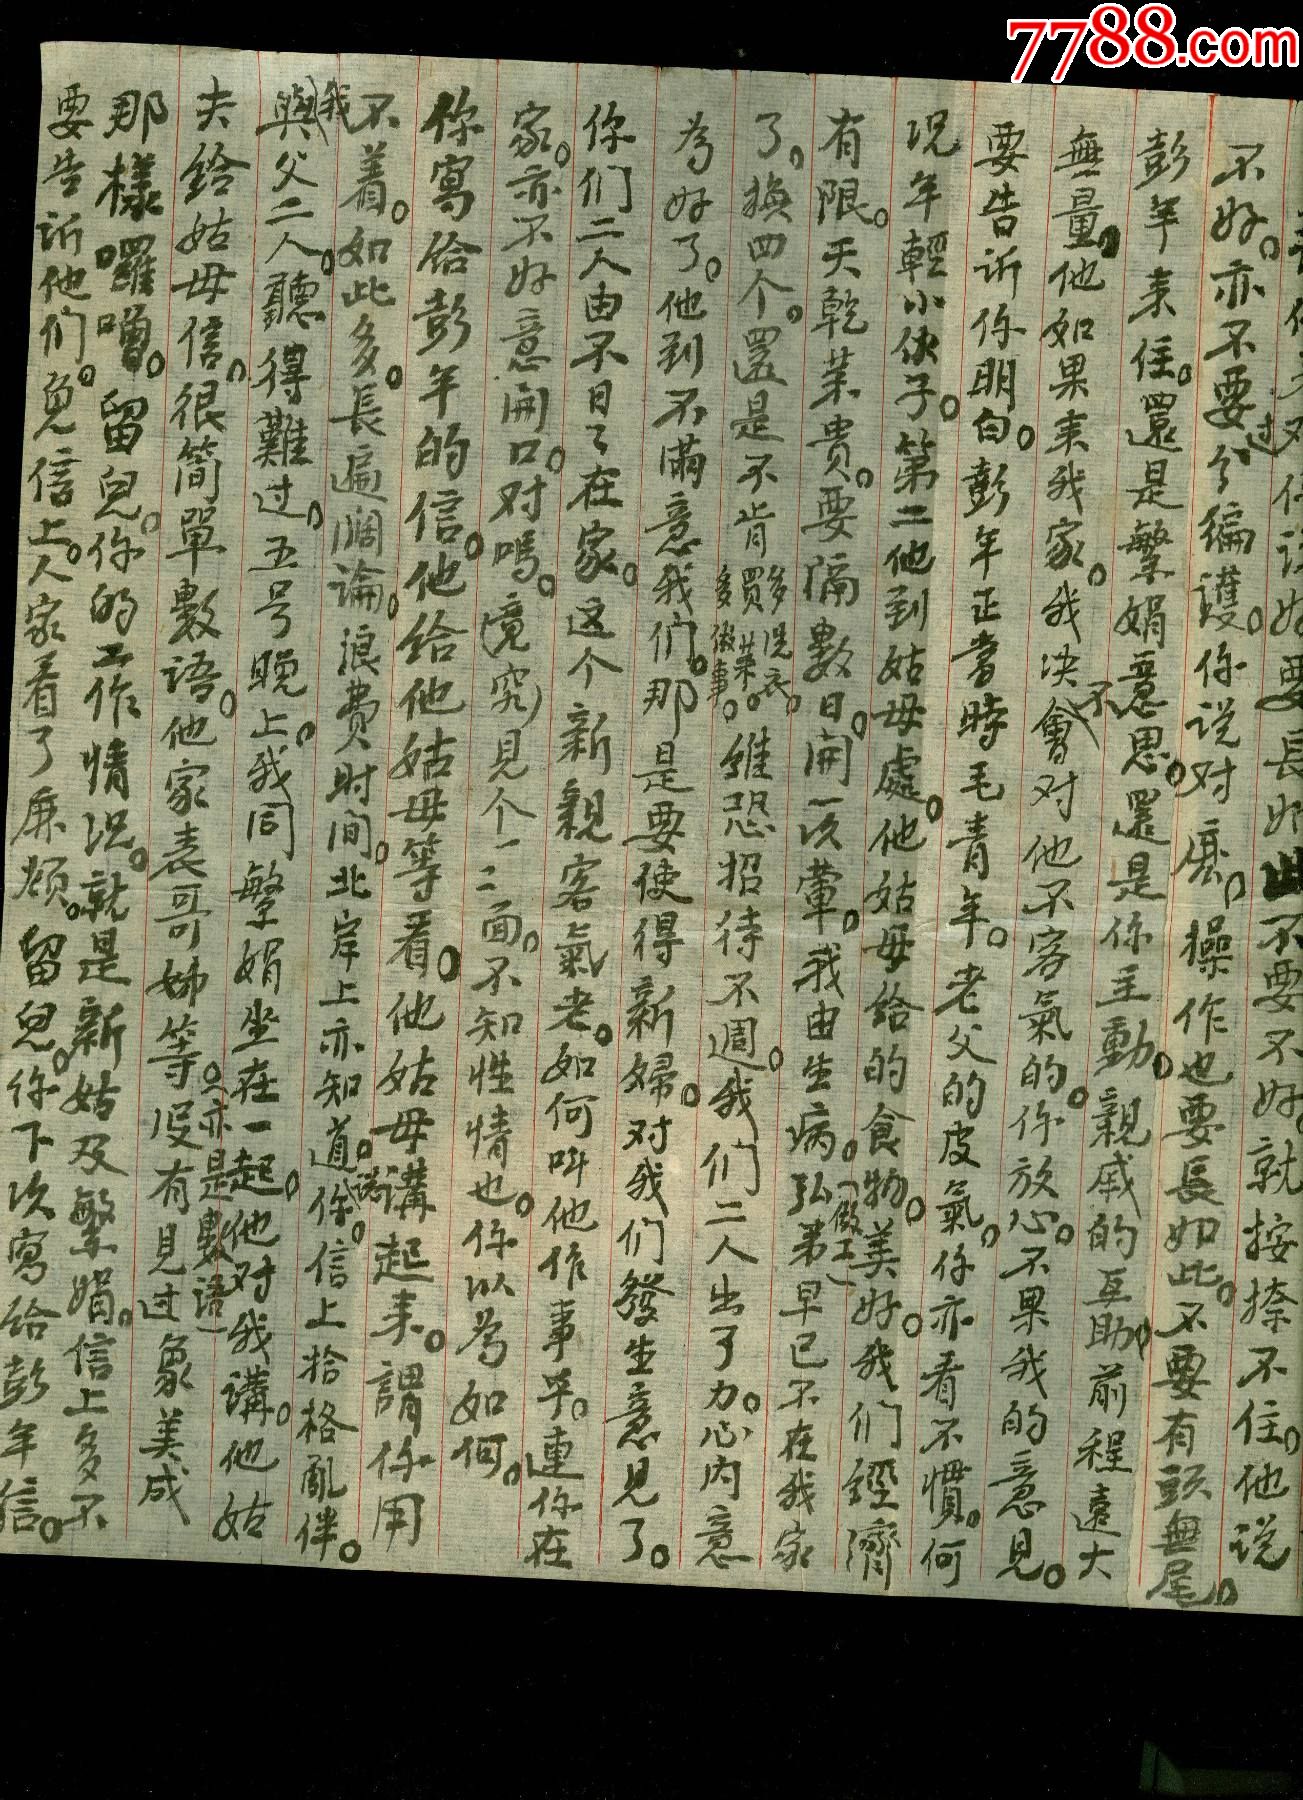 7788.com
不好。亦不要过分偏護。你说对麽。操作也要長如此。不要有頭無尾。
彭年来住。還是繁娟意思。還是你主動。親戚的互助。前程遠大
無量。他如果来我家。我决不會对他不客氣的。你放心。不果我的意見。
要告訴你明白。彭年正当時毛青年。老父的皮氣。你亦看不慣。何
况年輕小伙子。第二他到姑母處。他姑母給的食物。美好。我们經濟
有限。天乾菜贵。要隔數日。開一次葷。我由生病。(假工)弘弟早已不在我家
了。換四个。還是不肯多洗衣。買菜。多做事。維恐招待不週。我们二人出了力。心内意
為好了。他到不滿意我们。那是要使得新婦对我们發生意見了。
你们二人由不日日在家。这个新親客氣老。如何叫他作事乎。連你在
家。亦不好意開口。对嗎。(竟究)見个一二面。不知性情也。你以為如何。
你寫给彭年的信。他给他姑母等看。他姑母講起来。謂你用
不着。如此多。長遍濶論。浪费时间。北岸上亦知道。你信上拾格亂伴。
我與父二人。聽得難过。五号晚上。我同繁娟坐在一起。他对我講。他姑
夫給姑母信。很简單數语。他家表哥姊等。(亦是數语)没有見过象美成
那樣囉噌。留兒。你的工作情况。就是新姑及繁娟。信上多不
要告訴他们。免信上。人家看了麻煩。留兒。你下次寫给彭年信。